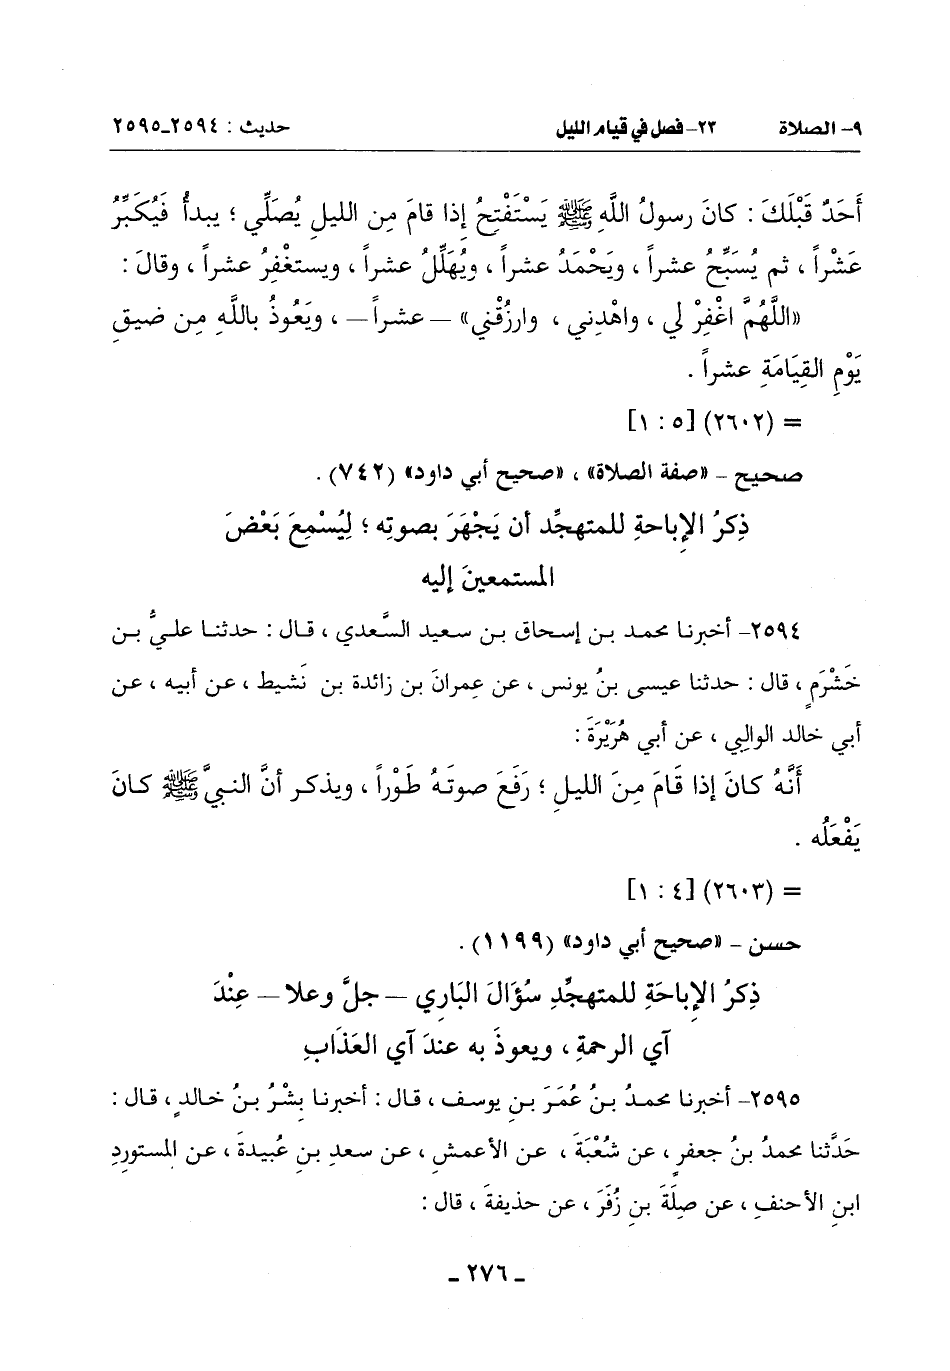 ٩- الصلاة ٢٣- فصل في قيام الليل حديث : ٢٥٩٤-٢٥٩٥
أَحَدٌ قَبْلَكَ : كانَ رسولُ اللَّهِ ﷺ يَسْتَفْتِحُ إذا قامَ مِن الليلِ يُصَلِّي ؛ يبدأُ فَيُكَبِّرُ
عَشْراً ، ثم يُسَبِّحُ عشراً ، ويَحْمَدُ عشراً ، ويُهَلِّلُ عشراً ، ويستغفِرُ عشراً ، وقالَ :
«اللَّهُمَّ اغْفِرْ لي ، واهْدِني ، وارزُقْني» — عشراً — ، ويَعُوذُ باللَّهِ مِن ضيقِ
يَوْمِ القِيَامَةِ عشراً .
= (٢٦٠٢) [٥ : ١]
صحيح - «صفة الصلاة» ، «صحيح أبي داود» (٧٤٢) .
ذِكرُ الإباحةِ للمتهجِّد أن يَجْهَرَ بصوتِه ؛ لِيُسْمِعَ بَعْضَ
المستمعينَ إليه
٢٥٩٤- أخبرنا محمد بن إسحاق بن سعيد السَّعدي ، قال : حدثنا عليُّ بن
خَشْرَمٍ ، قال : حدثنا عيسى بنُ يونس ، عن عِمرانَ بن زائدة بن نَشيط ، عن أبيه ، عن
أبي خالد الوالِبي ، عن أبي هُرَيْرَةَ :
أَنَّهُ كانَ إذا قَامَ مِنَ الليلِ ؛ رَفَعَ صوتَهُ طَوْراً ، ويذكر أنَّ النبيَّ ﷺ كانَ
يَفْعَلُه .
= (٢٦٠٣) [٤ : ١]
حسن - «صحيح أبي داود» (١١٩٩) .
ذِكرُ الإباحَةِ للمتهجِّدِ سُؤَالَ البَارِي — جلَّ وعلا — عِنْدَ
آي الرحمةِ ، ويعوذَ به عندَ آي العَذَابِ
٢٥٩٥- أخبرنا محمدُ بنُ عُمَرَ بنِ يوسف ، قال : أخبرنا بِشْرُ بنُ خالدٍ ، قال :
حَدَّثنا محمدُ بنُ جعفرٍ ، عن شُعْبَةَ ، عن الأعمشِ ، عن سعدِ بنِ عُبيدةَ ، عن المستوردِ
ابنِ الأحنفِ ، عن صِلَةَ بنِ زُفَرَ ، عن حذيفةَ ، قال :
- ٢٧٦ -